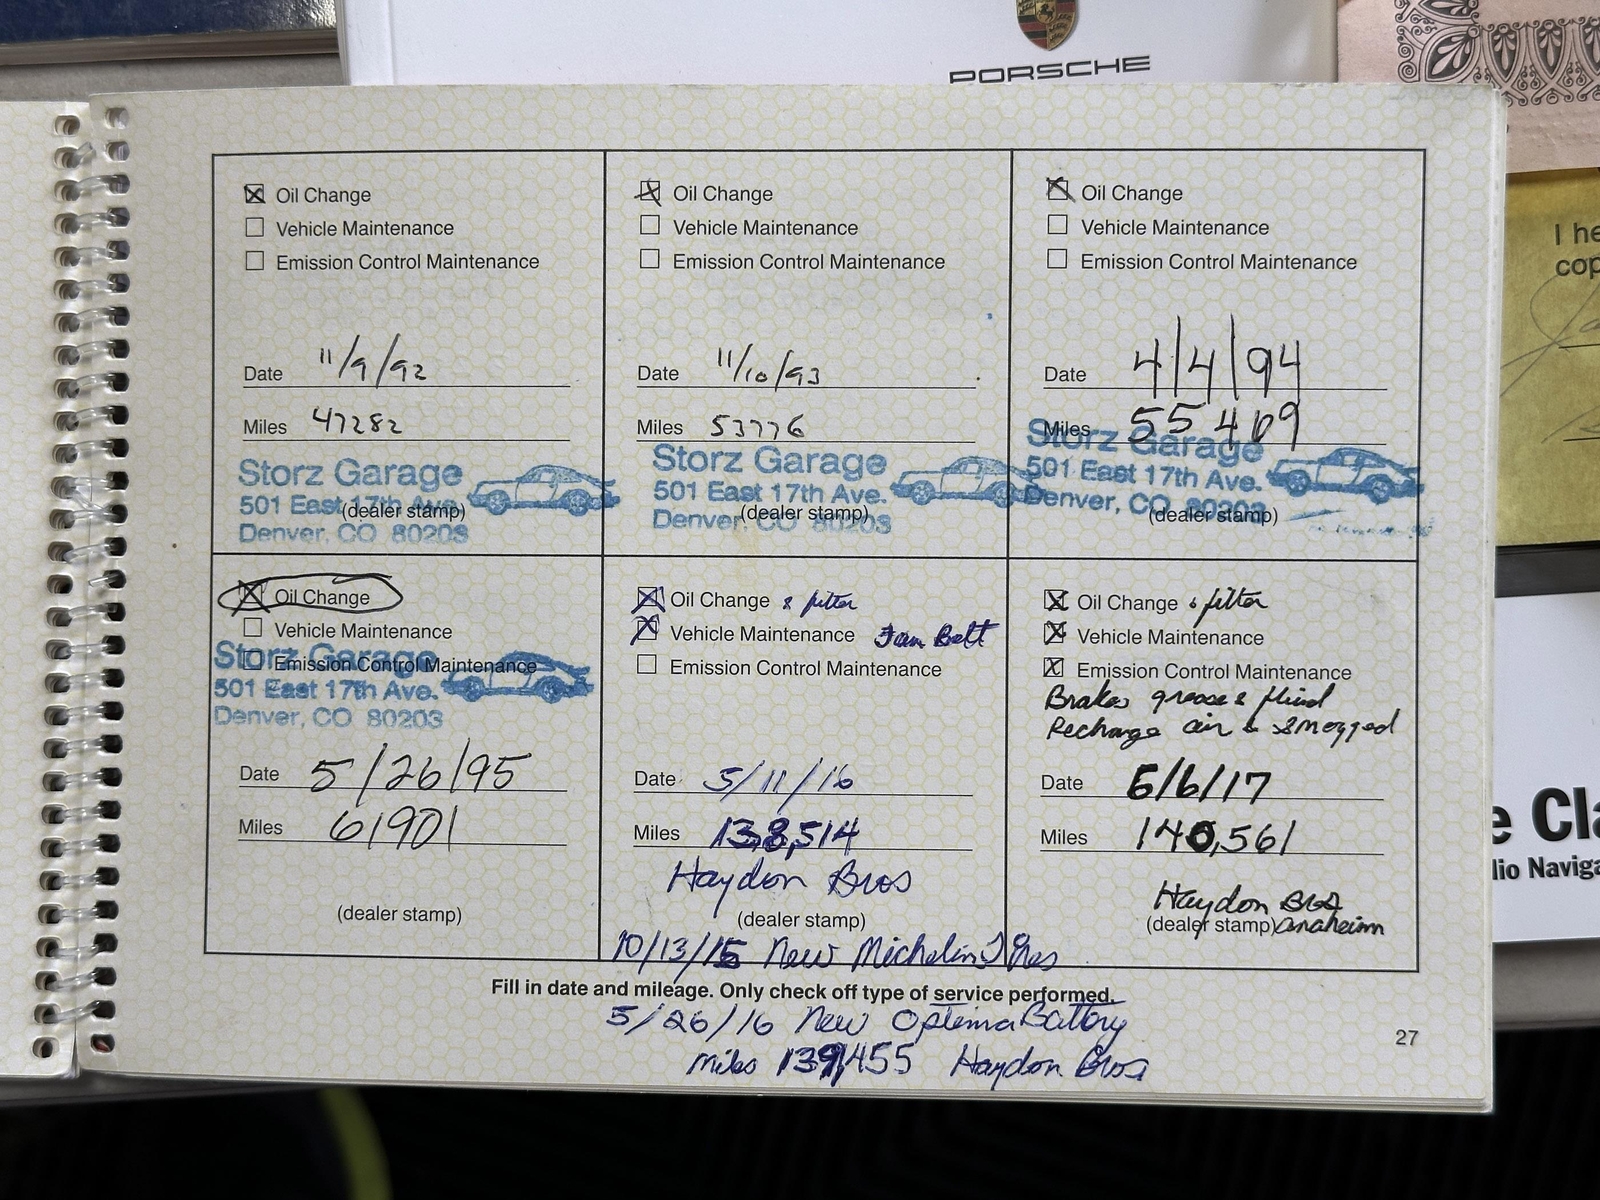 PORSCHE
Oil Change
Vehicle Maintenance
Emission Control Maintenance
Date 11/9/92
Miles 47282
Storz Garage
501 East 17th Ave.
(dealer stamp)
Denver, CO 80203
Oil Change
Vehicle Maintenance
Emission Control Maintenance
Date 11/10/93
Miles 53776
Storz Garage
501 East 17th Ave.
(dealer stamp)
Denver, CO 80203
Oil Change
Vehicle Maintenance
Emission Control Maintenance
Date 4/4/94
Miles 55409
Storz Garage
501 East 17th Ave.
Denver, CO 80203
(dealer stamp)
Oil Change
Vehicle Maintenance
Emission Control Maintenance
Storz Garage
501 East 17th Ave.
Denver, CO 80203
Date 5/26/95
Miles 61901
(dealer stamp)
Oil Change & filter
Vehicle Maintenance Fan Belt
Emission Control Maintenance
Date 5/11/16
Miles 138,514
Haydon Bros
(dealer stamp)
Oil Change & filter
Vehicle Maintenance
Emission Control Maintenance
Brakes grease & fluid
Recharge air & smogged
Date 6/6/17
Miles 140,561
Haydon Bros
(dealer stamp) Anaheim
10/13/15 New Michelin Tires
Fill in date and mileage. Only check off type of service performed.
5/26/16 New Optima Battery
miles 139,455 Haydon Bros
27
I he
cop
e Cla
dio Naviga